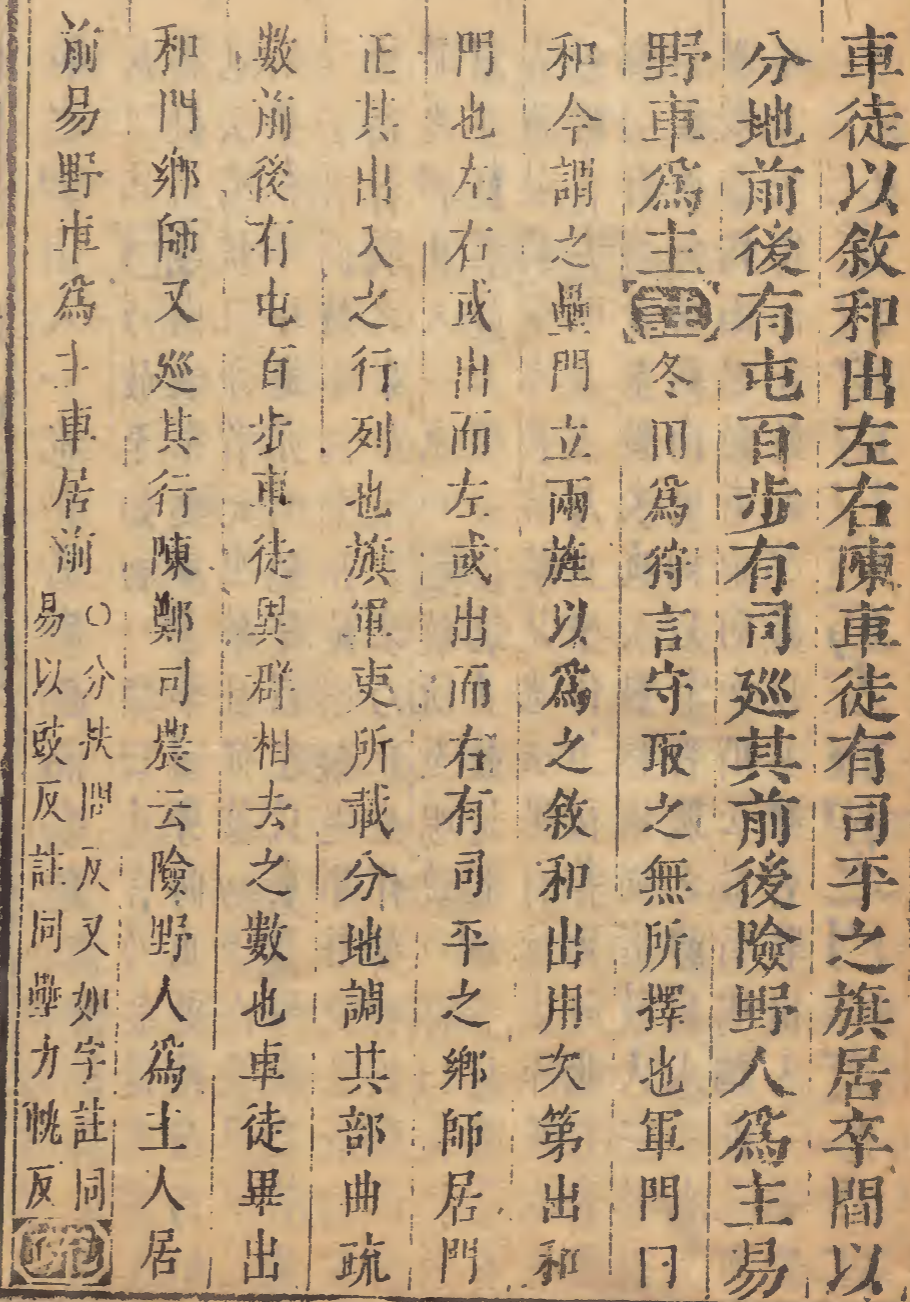 車徒以敘和出左右陳車徒有司平之旗居卒間以
分地前後有屯百步有司廵其前後險野人爲主易
野車爲主註冬田爲狩言守取之無所擇也軍門曰
和今謂之壘門立兩旌以爲之敘和出用次第出和
門也左右或出而左或出而右有司平之鄉師居門
正其出入之行列也旗軍吏所載分地調其部曲疏
數前後有屯百步車徒異群相去之數也車徒畢出
和門鄉師又廵其行陳鄭司農云險野人爲主人居
前易野車爲主車居前
○分扶問反又如字註同
易以豉反註同壘力軌反
疏